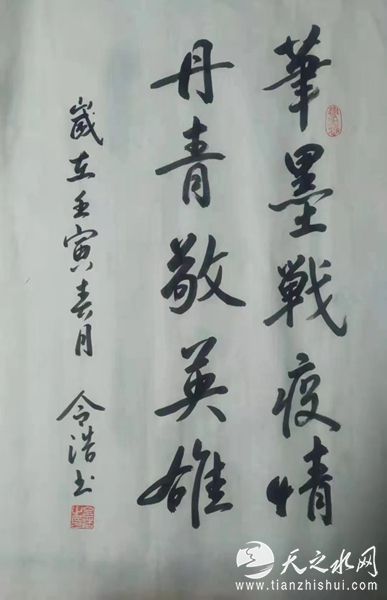 筆墨戰疫情
丹青敬英雄
歲在壬寅春月 令浩书
天之水网
www.tianzhishui.com